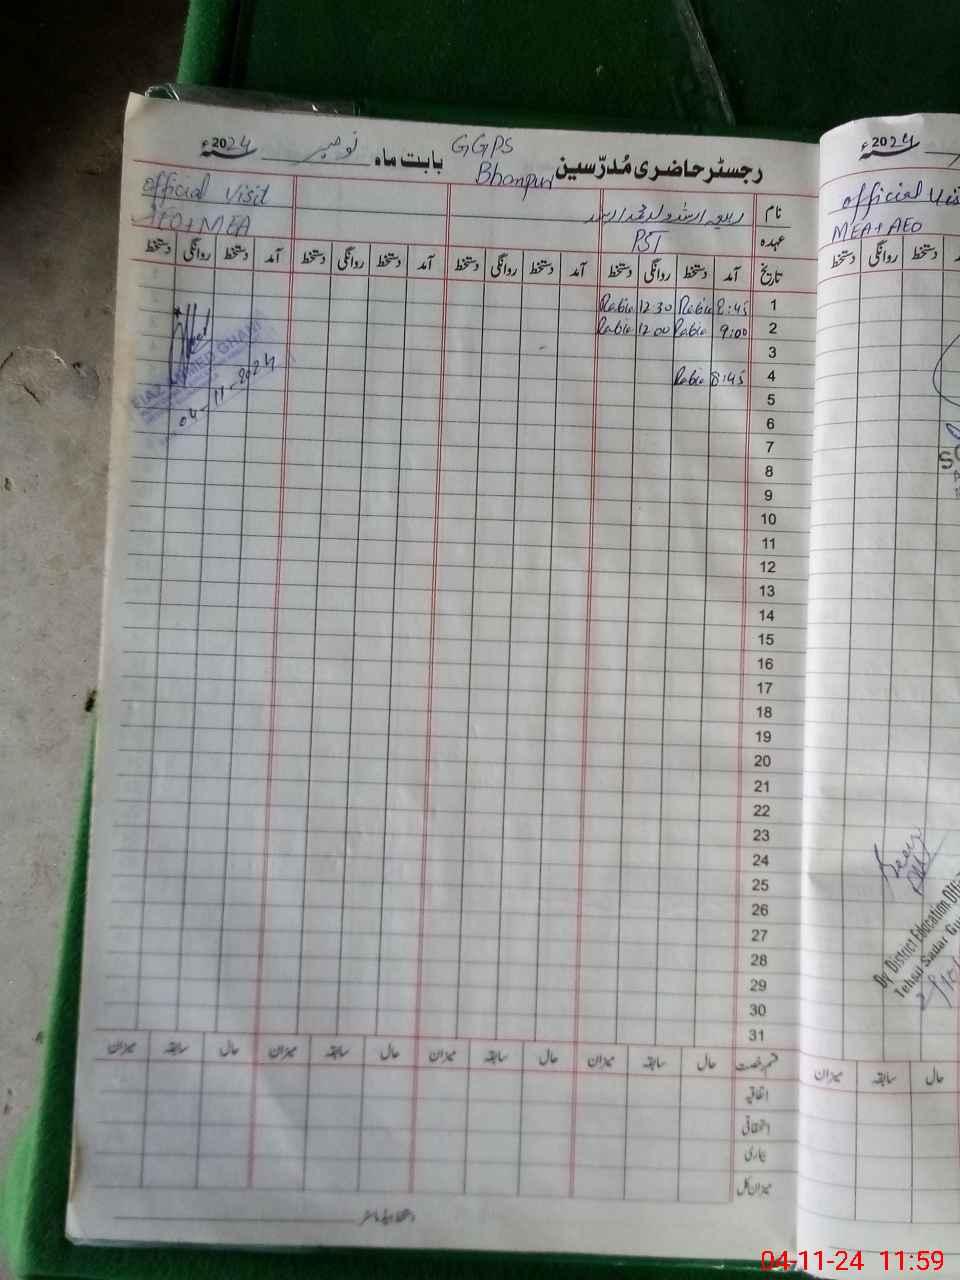 رجسٹر حاضری مُدرّسین GGPS Bhanpur بابت ماہ نومبر 2024ء
official visit
AEO+MEA
نام
عہدہ PST
تاریخ آمد دستخط روانگی دستخط آمد دستخط روانگی دستخط آمد دستخط روانگی دستخط آمد دستخط روانگی دستخط
1 8:45 Rabia 12:30 Rabia
2 9:00 Rabia 12:00 Rabia
3
4 8:45 Rabia
5
6
7
8
9
10
11
12
13
14
15
16
17
18
19
20
21
22
23
24
25
26
27
28
29
30
31
04-11-2024
قسم رخصت حال سابقہ میزان حال سابقہ میزان حال سابقہ میزان حال سابقہ میزان
اتفاقیہ
استحقاقی
بیماری
میزان کل
دستخط ہیڈ ماسٹر
2024ء
official
MEA+AEO
دستخط روانگی دستخط
Dy District Education
Tehsil Sadar
میزان سابقہ حال
04-11-24 11:59